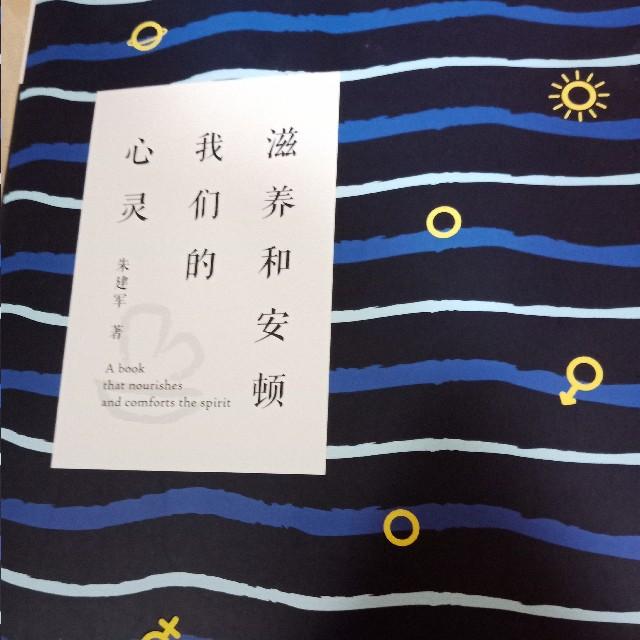 滋养和安顿
我们的
心灵
朱建军 著
A book
that nourishes
and comforts the spirit